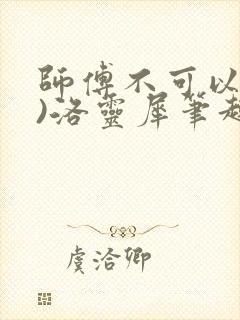 師傅不可以
)洛靈犀筆趣
虞洽卿